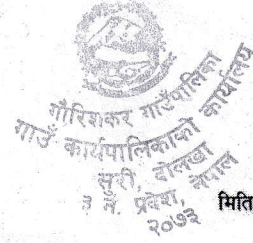 गौरिशंकर गाउँपालिका
गाउँ कार्यपालिकाको कार्यालय
सुरी, दोलखा
३ नं. प्रदेश, नेपाल
२०७३
मिति